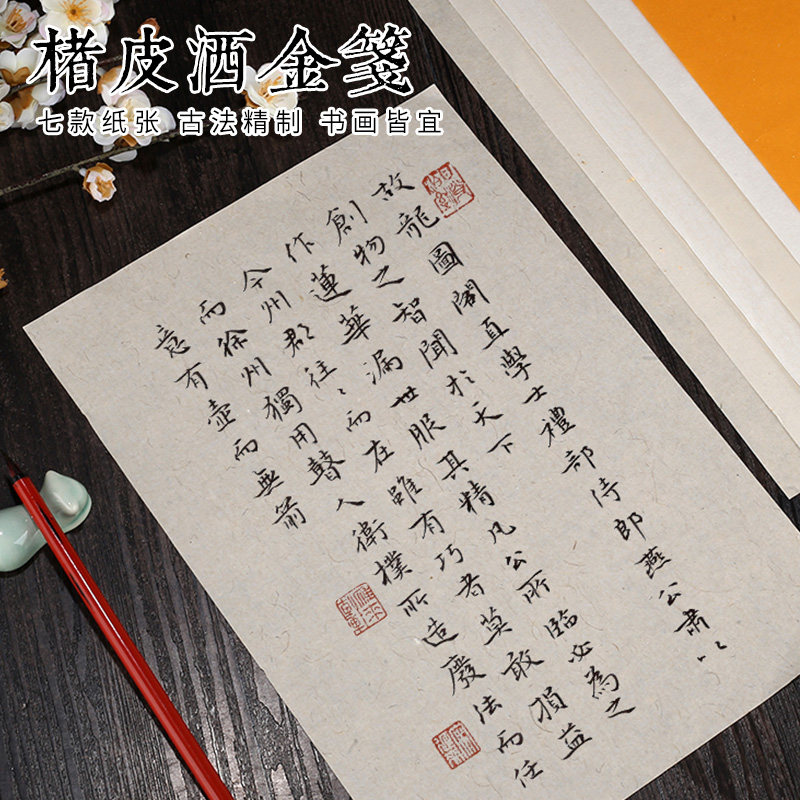 楮皮洒金箋
七款纸张 古法精制 书画皆宜
故龍圖閣直學士禮部侍郎燕公肅以
創物之智聞於天下
作蓮華漏世服其精凡公所臨必為之
今州郡往〻而在雖有巧者莫敢損益
而徐州獨用瞽人衛樸所造廢法而任
意有壺而無箭